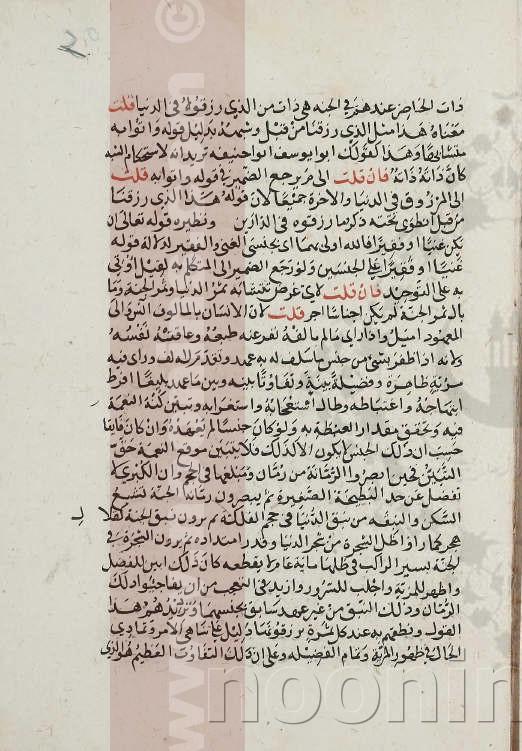 ذات الحاضر عندهم في الجنه هي ذات من الذي رزقوه في الدنيا قلت
معناه هذا مثل الذي رزقنا من قبل وشبهه بدليل قوله واتوا به
متشابها وهذا كقولك ابو يوسف ابو حنيفه تريد انه لاستحكام الشبه
كان ذاته ذاته فان قلت الى م يرجع الضمير في قوله واتوا به قلت
الى المرزوق في الدنيا والاخرة جميعا لان قوله هذا الذي رزقنا
من قبل انطوى تحته ذكر ما رزقوه في الدارين ونظيره قوله تعالى ان
يكن غنيا او فقيرا فالله اولى بهما اى بجنسي الغني والفقير لدلالة قوله
غنيا او فقيرا على الجنسين ولو رجع الضمير الى المتكلم به لقيل اولى
به على التوحيد فان قلت لاي غرض يتشابه ثمر الدنيا وثمر الجنة وما
بال ثمر الجنة لم يكن اجناسا اخر قلت لان الانسان بالمالوف انس والى
المعهود اميل واذا راى ما لم يالفه نفر عنه طبعه وعافته نفسه
ولانه اذا ظفر بشئ من جنس ما سلف له به عهد وتقدم له الف وراى فيه
مزية ظاهرة وفضيلة بينة وتفاوتا بينه وبين ما عهد بليغا افرط
ابتهاجه واغتباطه وطال استعجابه واستغرابه وتبين كنه النعمة
فيه وتحقق مقدار الغبطة به ولو كان جنسا لم يعهده وان كان فائقا
حسب ان ذلك الجنس لا يكون الا كذلك فلا يتبين موقع النعمة حق
التبين فحين ابصروا الرمانة من رمان الدنيا ومبلغها في الحجم وان الكبرى لا
تفضل عن حد البطيخة الصغيرة ثم يبصرون رمانة الجنة تشبع
السكن والنبقه من نبق الدنيا في حجم الفلكة ثم يرون نبق الجنة كقلال
هجر كما راوا ظل الشجرة من شجر الدنيا وقدر امتداده ثم يرون الشجرة في
الجنة يسير الراكب في ظلها ماية عام لا يقطعه كان ذلك ابين للفضل
واظهر للمزية واجلب للسرور وازيد في التعجب من ان يفاجئوا ذلك
الرمان وذلك النبق من غير عهد سابق بجنسهما وترديدهم هذا
القول ونطقهم به عند كل ثمرة يرزقونها دليل على تناهي الامر وتمادي
الحال في ظهور المزية وتمام الفضيلة وعلى ان ذلك التفاوت العظيم هو الذي
noonin
www
©